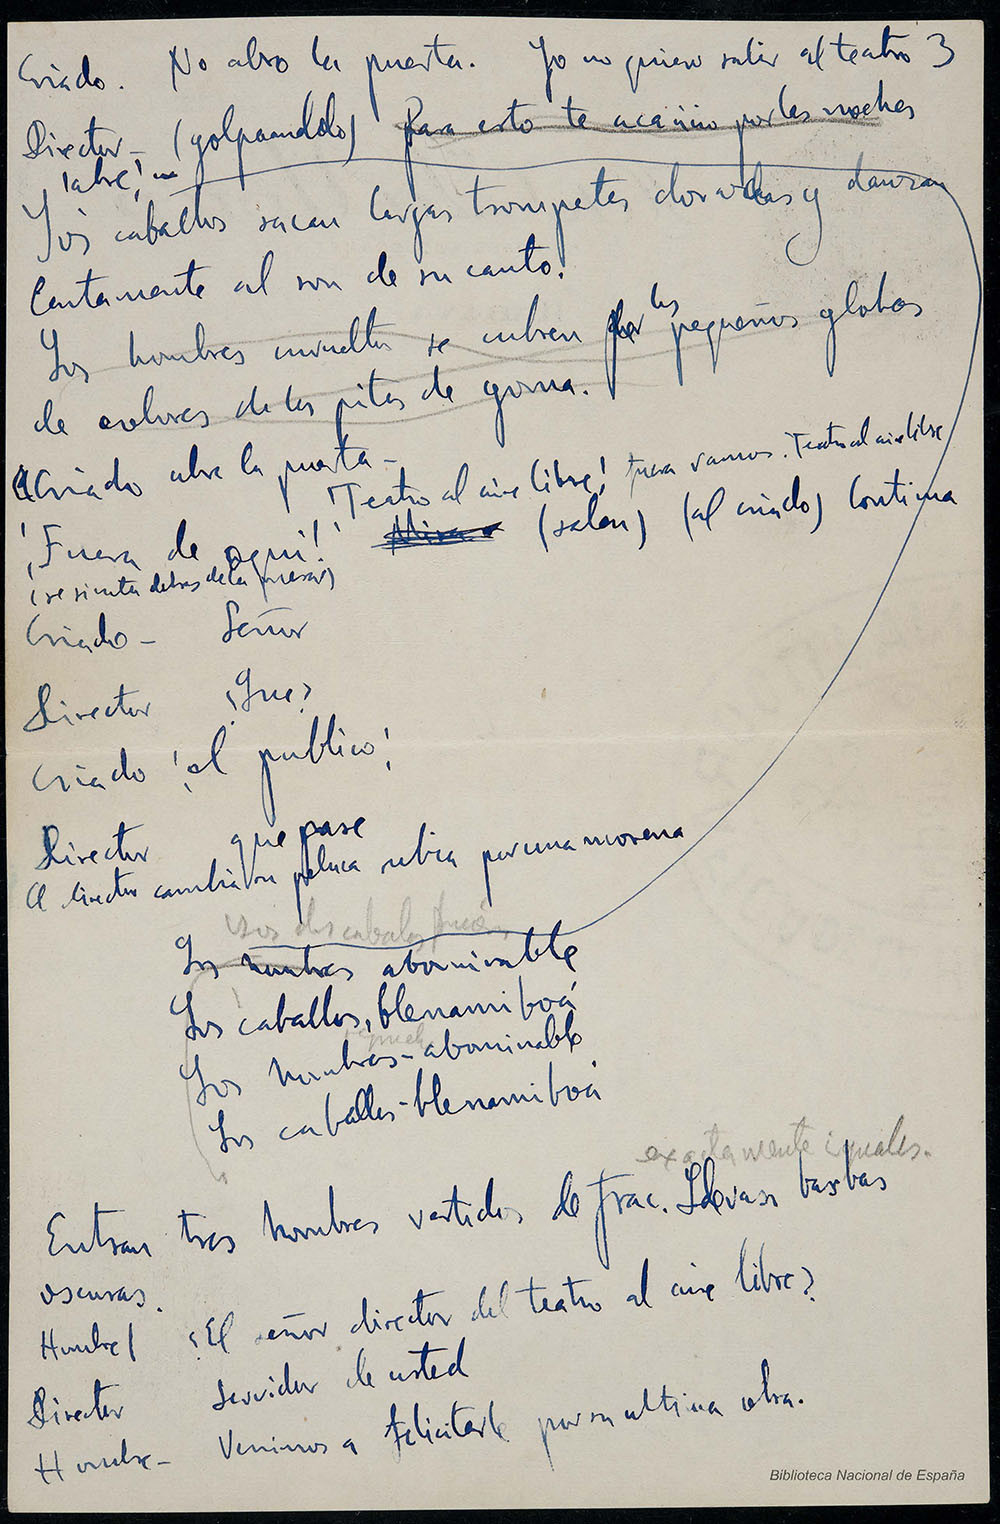 Criado. No abro la puerta. Yo no quiero salir al teatro 3
Director – (golpeandolo) Para esto te acaricio por las noches
¡abre!
Los caballos sacan largas trompetas doradas y danzan
lentamente al son de su canto.
Los hombres se cubren por los pequeños globos
de colores de las pitas de goma.
El Criado abre la puerta –
¡Teatro al aire libre! fuera vamos. Teatro al aire libre
¡Fuera de aqui! (salen) (al criado) Continua
(se sienta detras de la mesa)
Criado – Señor
Director ¿Que?
Criado ¡el publico!
Director que pase
El Director cambia su peluca rubia por una morena
Los hombres abominable
Los caballos, blenamiboá
Los hombres – abominable
Los caballos – blenamiboá
exactamente iguales.
Entran tres hombres vestidos de frac. Llevan barbas
oscuras.
Hombre 1 ¿El señor director del teatro al aire libre?
Director Servidor de usted
Hombre – Venimos a felicitarle por su ultima obra.
Biblioteca Nacional de España